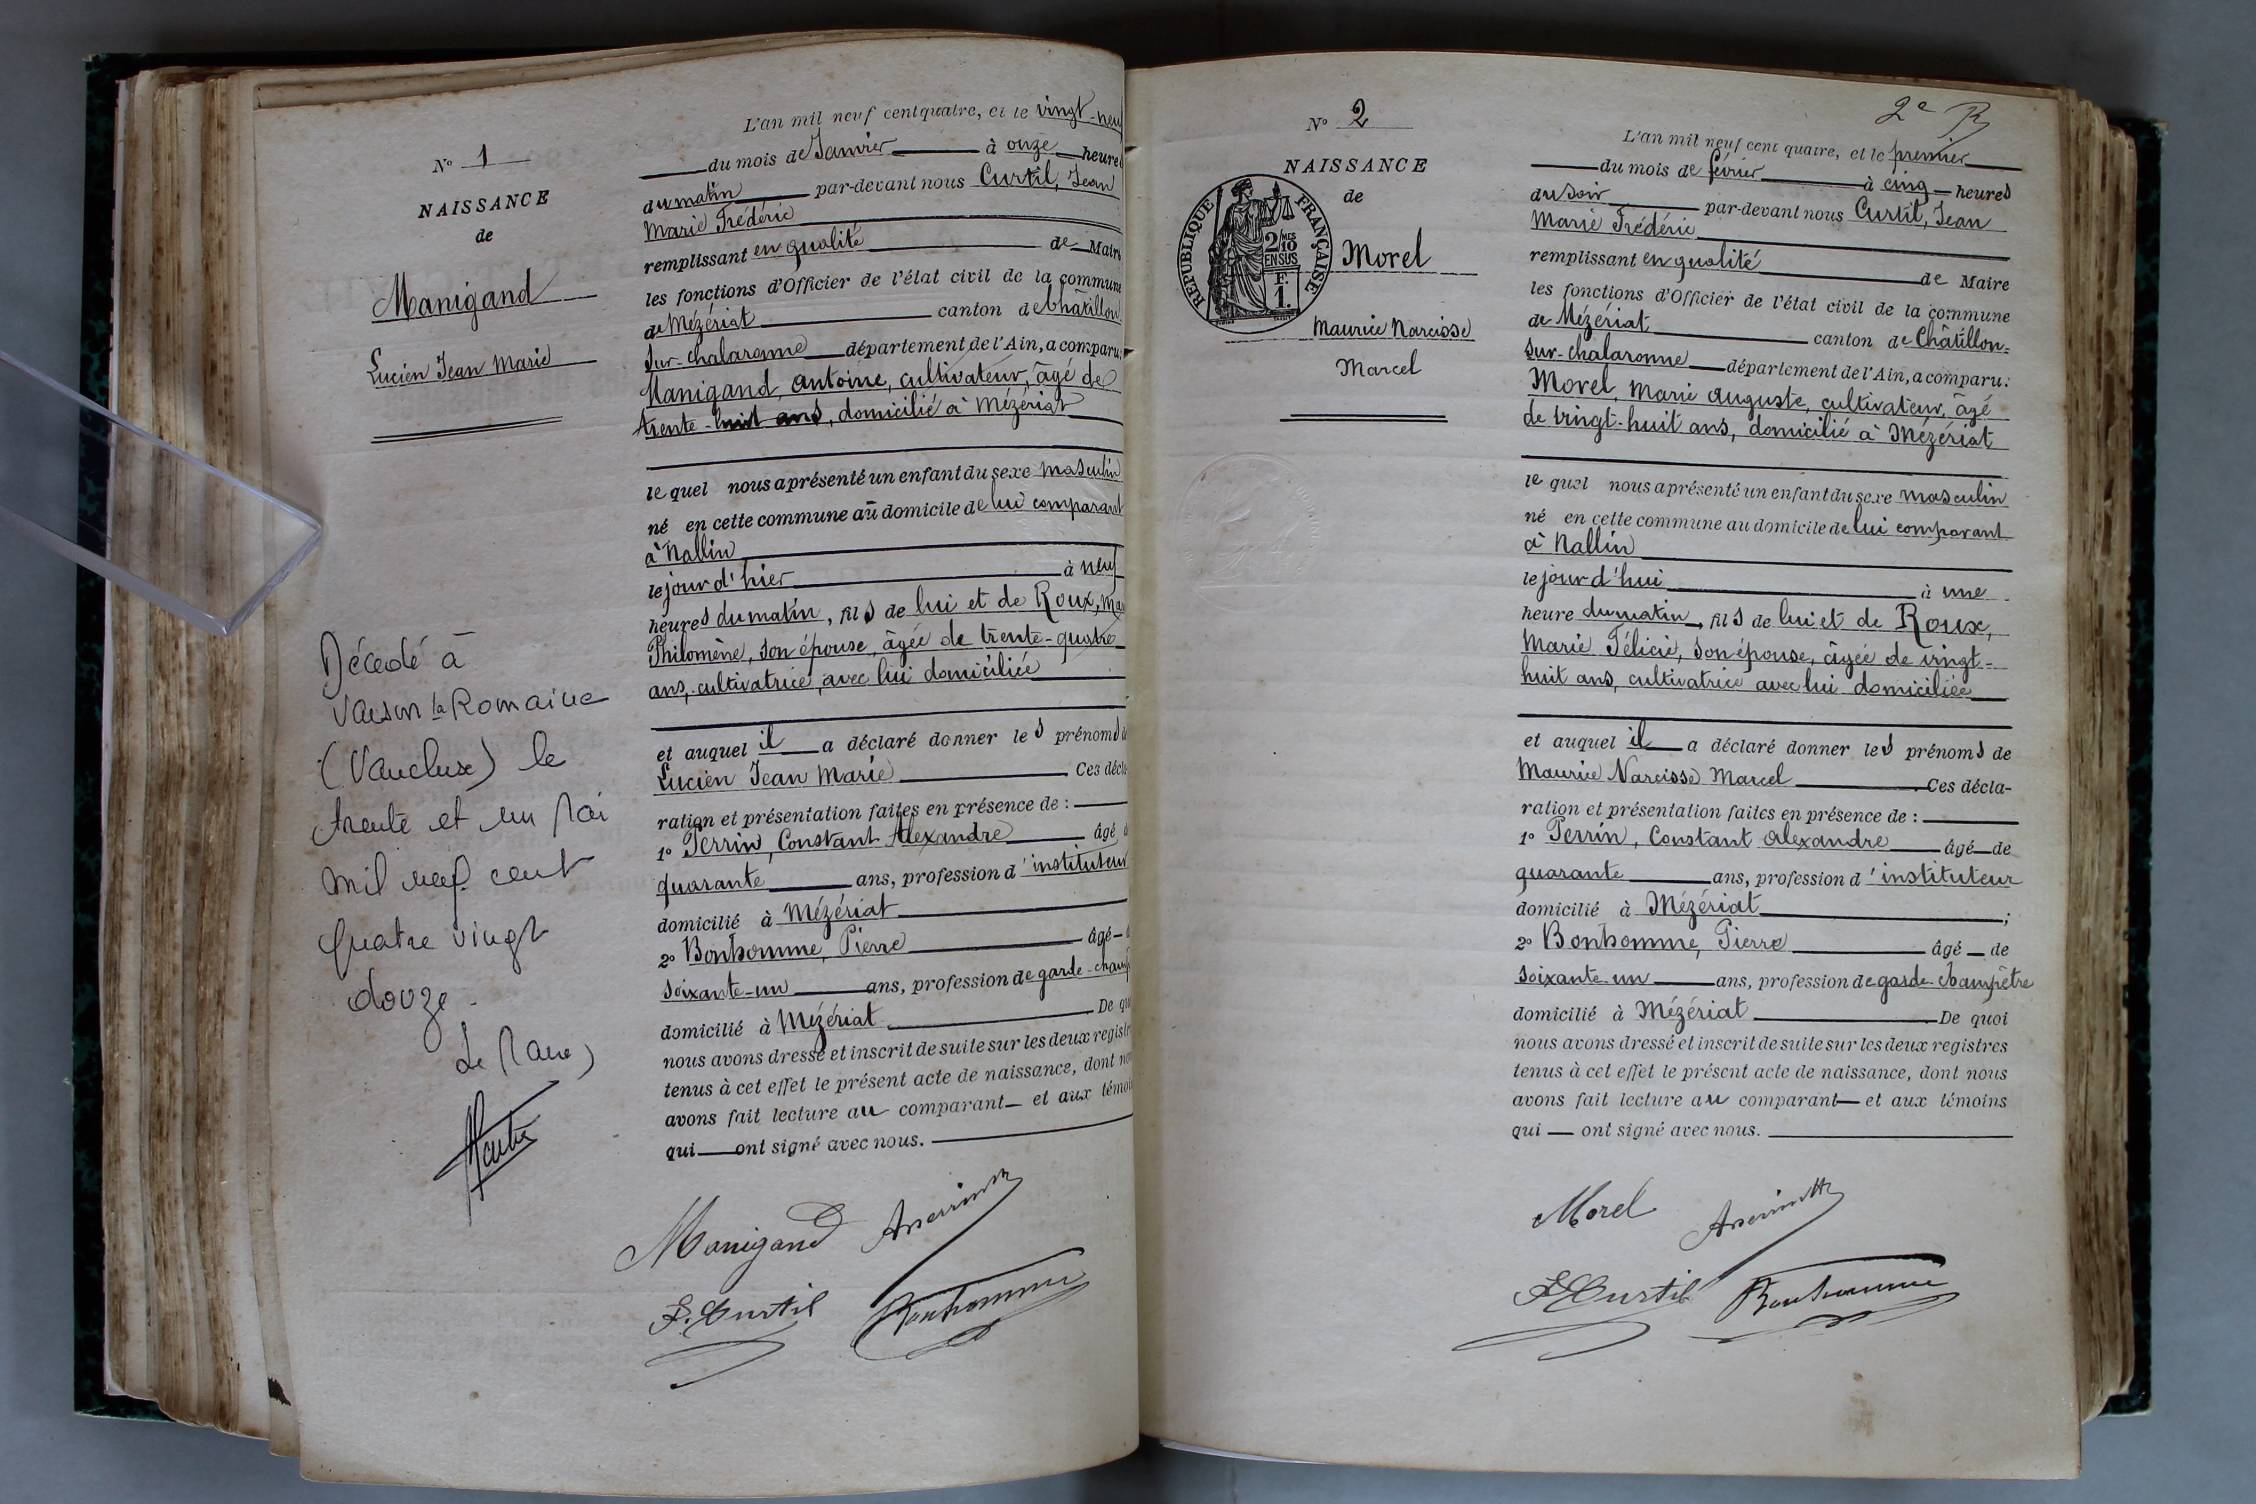 N° 1
NAISSANCE
de
Manigand
Lucien Jean Marie
Décédé à
Vaison la Romaine
(Vaucluse) le
trente et un Mai
mil neuf cent
quatre vingt
douze.
Le Maire,
L'an mil neuf cent quatre, et le vingt-neuf
du mois de Janvier à onze heures
du matin par-devant nous Curtil, Jean
Marie Frédéric
remplissant en qualité de Maire
les fonctions d'Officier de l'état civil de la commune
de Mézériat canton de Châtillon
sur-chalaronne département de l'Ain, a comparu:
Manigand, antoine, cultivateur, âgé de
trente-huit ans, domicilié à Mézériat
le quel nous a présenté un enfant du sexe masculin
né en cette commune au domicile de lui comparant
à Nallin
le jour d'hier à neuf
heures du matin, fils de lui et de Roux, Ma
Philomène, son épouse, âgée de trente-quatre
ans, cultivatrice, avec lui domiciliée
et auquel il a déclaré donner les prénoms
Lucien Jean Marie Ces décla
ration et présentation faites en présence de :
1° Perrin, Constant Alexandre âgé
quarante ans, profession d'instituteur
domicilié à Mézériat
2° Bonhomme, Pierre âgé
soixante-un ans, profession de garde-champ
domicilié à Mézériat De qu
nous avons dressé et inscrit de suite sur les deux registr
tenus à cet effet le présent acte de naissance, dont no
avons fait lecture au comparant et aux témoi
qui ont signé avec nous.
Manigand
F. Curtil Bonhomme
2e R
N° 2
NAISSANCE
de
REPUBLIQUE FRANÇAISE
2/10 MES
EN SUS
F.
1.
Morel
Maurice Narcisse
Marcel
L'an mil neuf cent quatre, et le premier
du mois de février à cinq heures
du soir par-devant nous Curtil, Jean
Marie Frédéric
remplissant en qualité de Maire
les fonctions d'Officier de l'état civil de la commune
de Mézériat canton de Châtillon-
sur-chalaronne département de l'Ain, a comparu:
Morel, Marie auguste, cultivateur, âgé
de vingt-huit ans, domicilié à Mézériat
le quel nous a présenté un enfant du sexe masculin
né en cette commune au domicile de lui comparant
à Nallin
le jour d'hui à une
heure du matin, fils de lui et de Roux,
Marie Félicie, son épouse, âgée de vingt-
huit ans, cultivatrice avec lui domiciliée
et auquel il a déclaré donner les prénoms de
Maurice Narcisse Marcel Ces décla-
ration et présentation faites en présence de :
1° Perrin, Constant alexandre âgé de
quarante ans, profession d'instituteur
domicilié à Mézériat ;
2° Bonhomme, Pierre âgé de
soixante-un ans, profession de garde-champêtre
domicilié à Mézériat De quoi
nous avons dressé et inscrit de suite sur les deux registres
tenus à cet effet le présent acte de naissance, dont nous
avons fait lecture au comparant et aux témoins
qui ont signé avec nous.
Morel
F Curtil Bonhomme